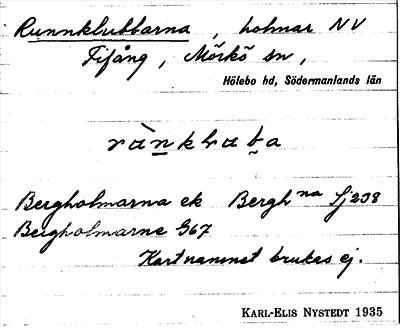 Runnklubbarna, holmar NV
Fifång, Mörkö sn,
Hölebo hd, Södermanlands län
Bergholmarna ek Bergh na Sj 208
Bergholmarne G67
Kartnamnet brukas ej.
KARL-ELIS NYSTEDT 1935